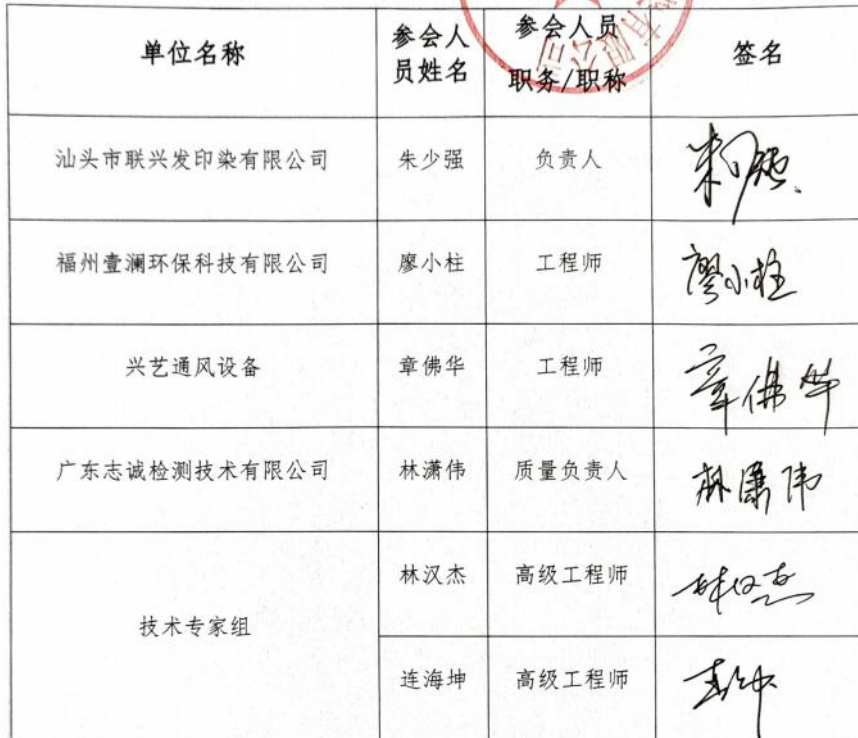 单位名称
参会人员姓名
参会人员
职务/职称
签名
汕头市联兴发印染有限公司 朱少强 负责人
福州壹澜环保科技有限公司 廖小柱 工程师 廖小柱
兴艺通风设备 章佛华 工程师 章佛华
广东志诚检测技术有限公司 林潇伟 质量负责人
技术专家组
林汉杰 高级工程师 林汉杰
连海坤 高级工程师
有限公司